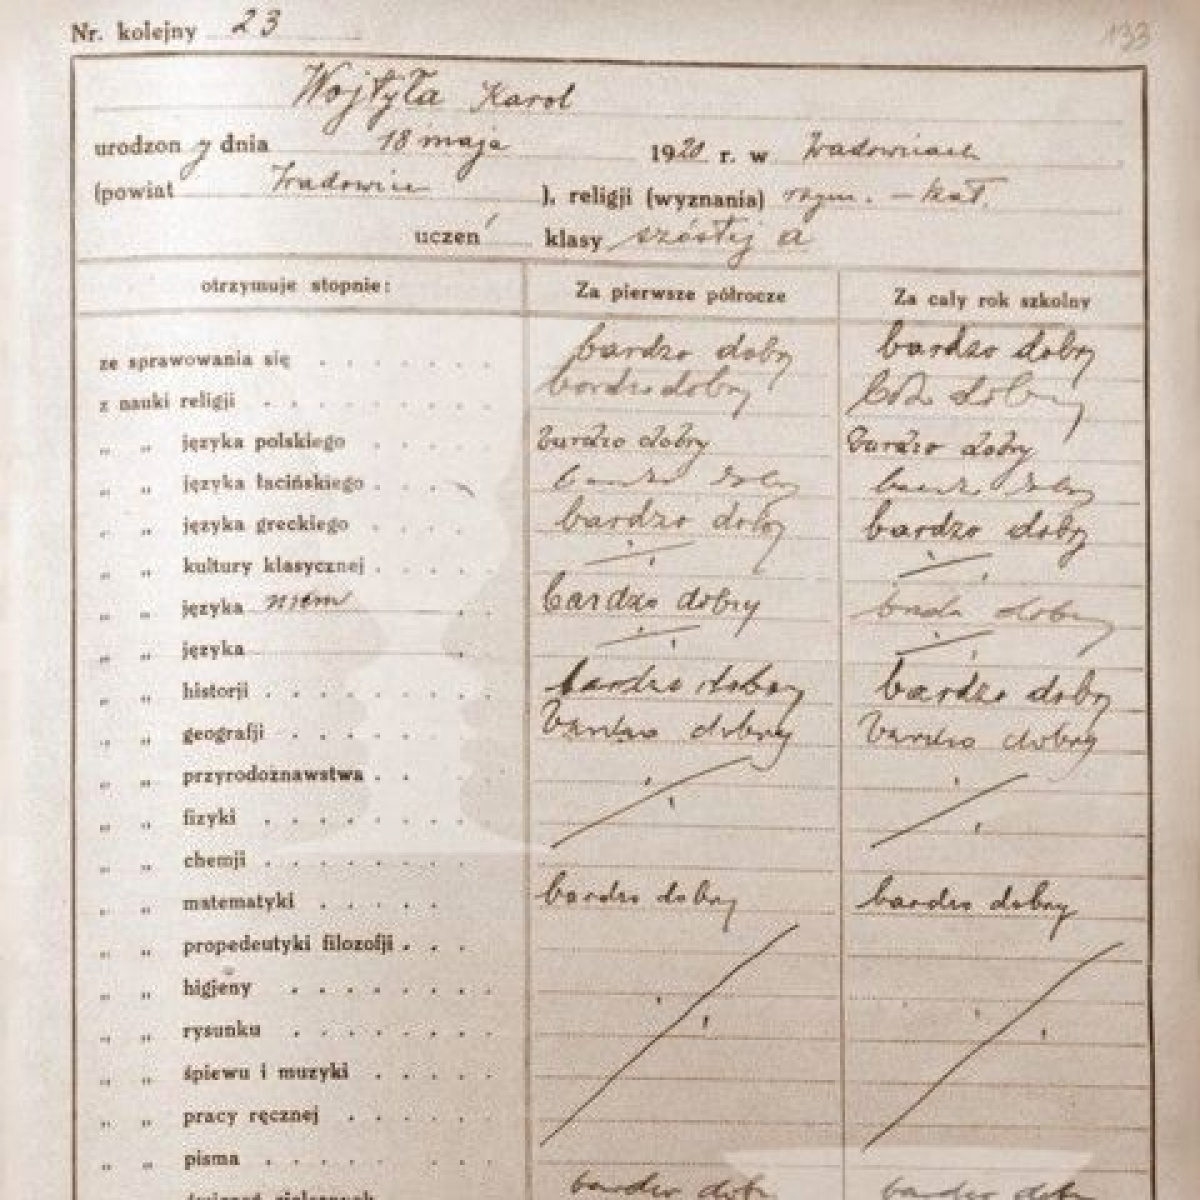 Nr. kolejny 23 133
Wojtyła Karol
urodzony dnia 18 maja 1920 r. w Wadowicach
(powiat Wadowice ), religji (wyznania) rzym. - kat.
uczeń klasy szóstej a
otrzymuje stopnie: Za pierwsze półrocze Za cały rok szkolny
ze sprawowania się bardzo dobry bardzo dobry
z nauki religji bardzo dobry bdo dobry
„ „ języka polskiego bardzo dobry bardzo dobry
„ „ języka łacińskiego bardzo dobry bardzo dobry
„ „ języka greckiego bardzo dobry bardzo dobry
„ „ kultury klasycznej
„ „ języka niem bardzo dobry bardzo dobry
„ „ języka
„ „ historji bardzo dobry bardzo dobry
„ „ geografji bardzo dobry bardzo dobry
„ „ przyrodoznawstwa
„ „ fizyki
„ „ chemji
„ „ matematyki bardzo dobry bardzo dobry
„ „ propedeutyki filozofji
„ „ higjeny
„ „ rysunku
„ „ śpiewu i muzyki
„ „ pracy ręcznej
„ „ pisma
ćwiczeń cielesnych bardzo dobry bardzo dobry